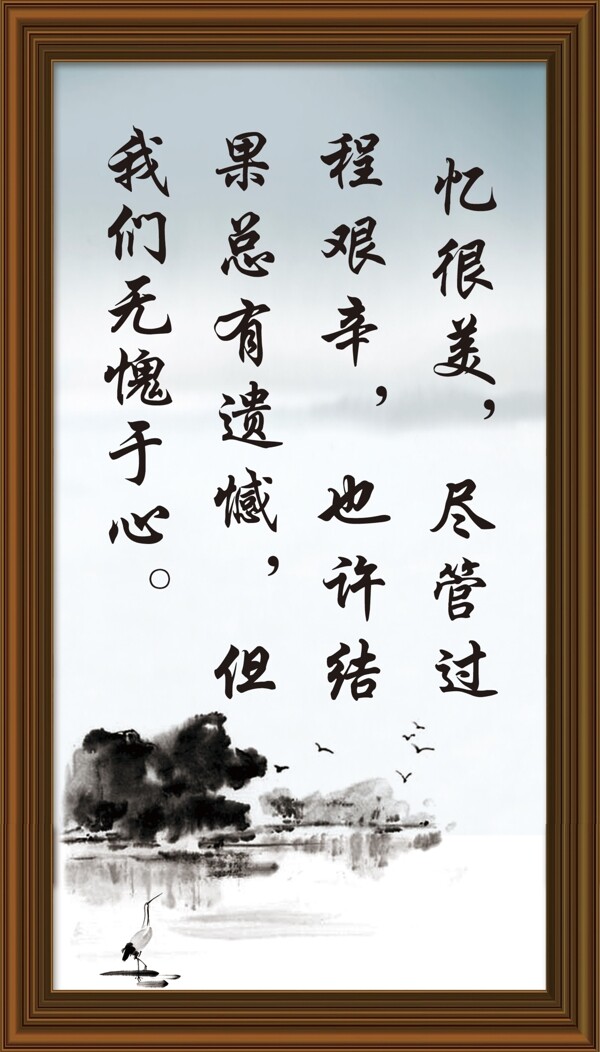 忆很美，尽管过
程艰辛，也许结
果总有遗憾，但
我们无愧于心。